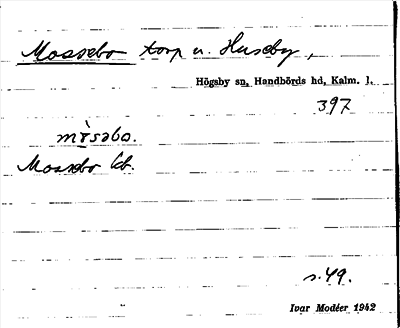 Mossebo torp u. Huseby,
Högsby sn, Handbörds hd, Kalm. l.
397
mòsabo.
Mossebo kb.
s. 49.
Ivar Modéer 1942